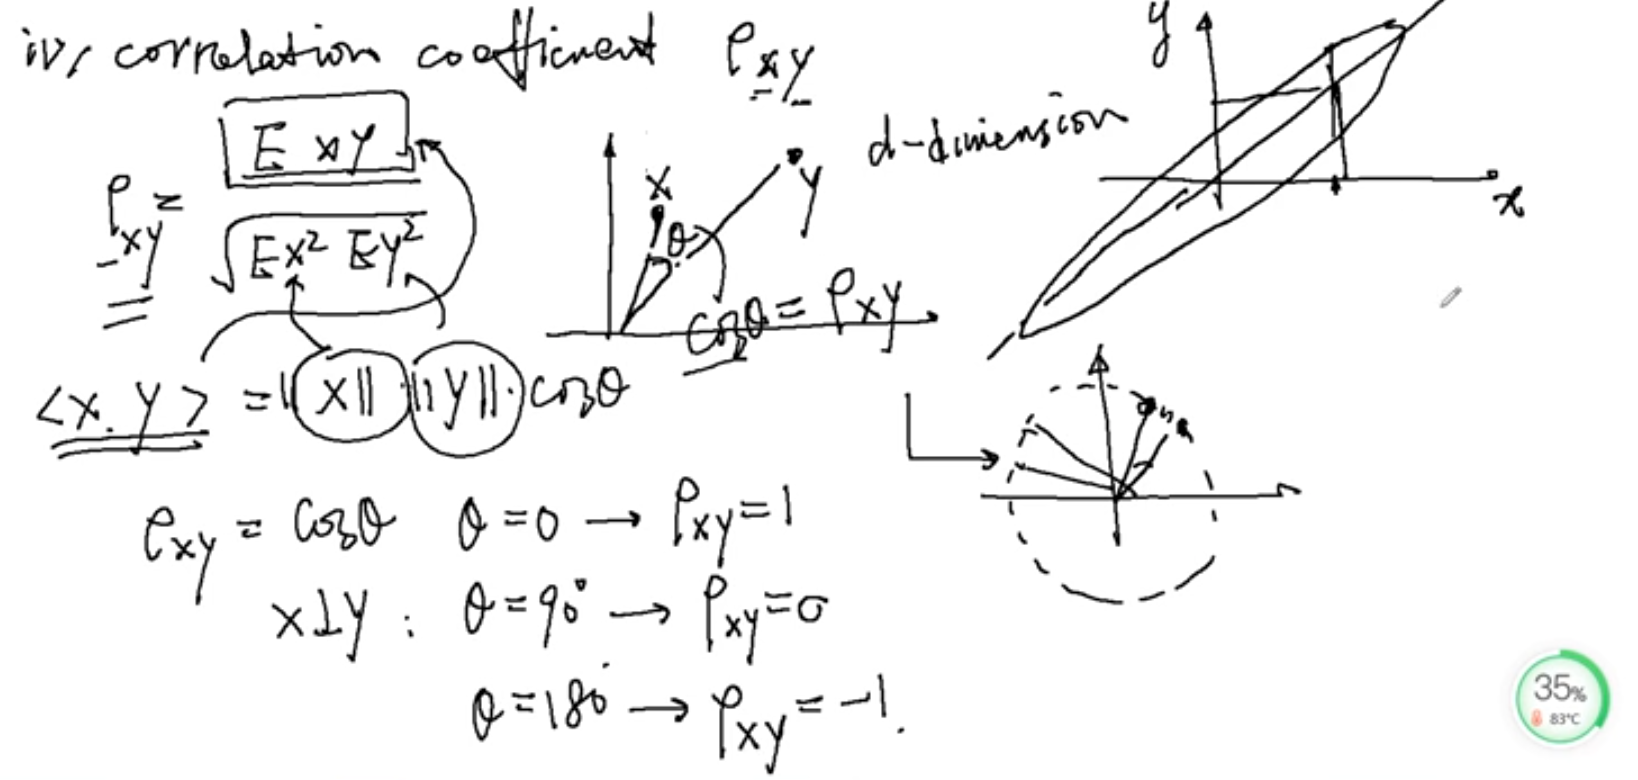 iv, correlation coefficient ρxy
ρxy = E xy / √(Ex² Ey²)
<x, y> = ||x|| ||y|| · cosθ
x
y
θ
cosθ = ρxy
d-dimension
y
x
ρxy = cosθ θ = 0 → ρxy = 1
x⊥y : θ = 90° → ρxy = 0
θ = 180° → ρxy = -1.
35%
83°C